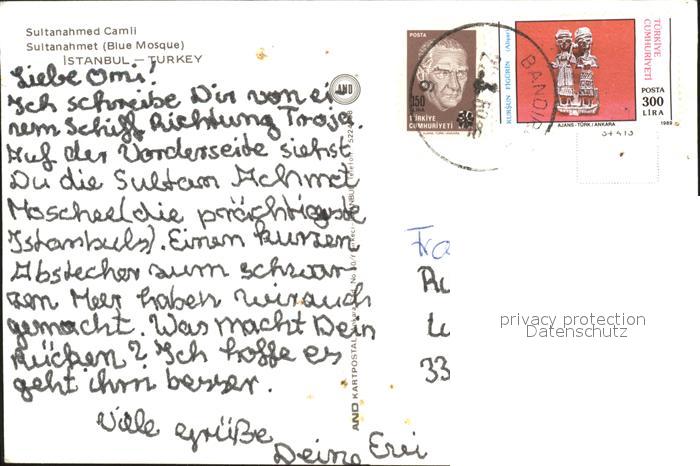 Sultanahmed Camli
Sultanahmet (Blue Mosque)
İSTANBUL – TURKEY
Liebe Omi!
Ich schreibe Dir von ei
nem Schiff Richtung Troja
Auf der Vorderseite siehst
Du die Sultan Achmet
Moschee (die prächtigste
Istanbuls). Einen kurzen
Abstecher zum schwar-
zen Meer haben wir auch
gemacht. Was macht Dein
Rücken? Ich hoffe es
geht ihm besser.
Viele Grüße
Deine
AND
AND KARTPOSTAL
POSTA
350
LİRA
TÜRKİYE
CUMHURİYETİ
BANDIR
KURŞUN FİGÜRİN
TÜRKİYE
CUMHURİYETİ
POSTA
300
LİRA
AJANS-TÜRK/ANKARA
1989
Fra
33
privacy protection
Datenschutz